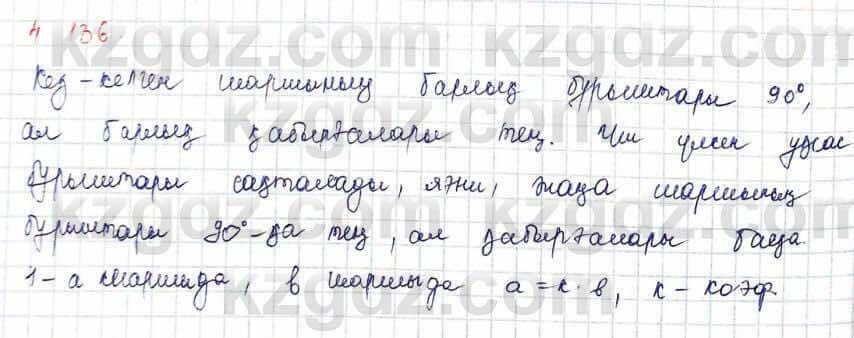 4 136.
Кез-келген шаршының барлық бұрыштары 90°,
ал барлық қабырғалары тең. Үш үлкен ұқсас
бұрыштары сақталады, яғни, жаңа шаршының
бұрыштары 90°-қа тең, ал қабырғалары басқа.
1-а шаршыда, в шаршыда а=к·в, к-коэф.